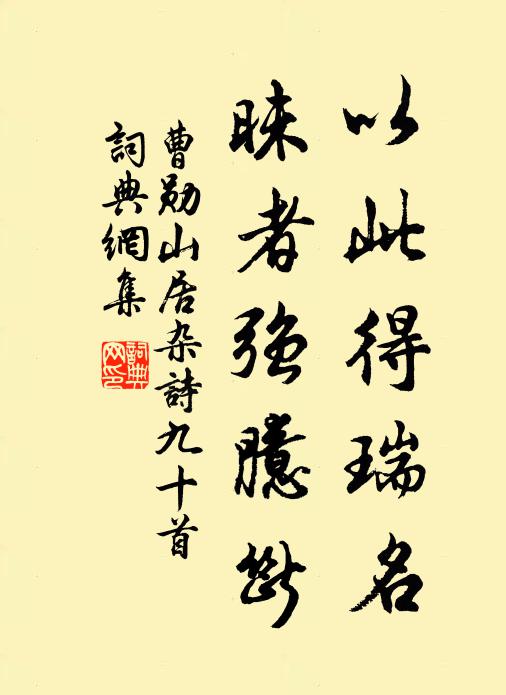 以此得瑞名
昧者强臆斷
曹勋山居杂詩九十首
詞典網集
詞典网印